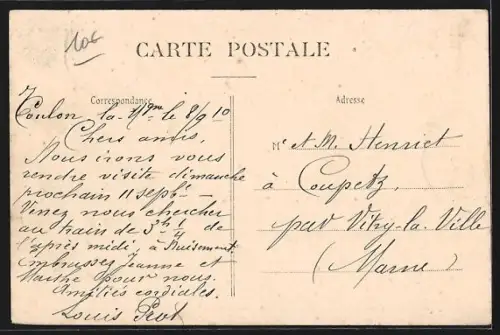 10€
CARTE POSTALE
Correspondance
Toulon la Mgne le 8/9 10
Chers amis,
Nous irons vous
rendre visite dimanche
prochain 11 septbre
Venez nous chercher
au train de 3h 1/4 de
l'après midi, à Nuisement
Embrassez Jeanne et
Marthe pour nous.
Amitiés cordiales.
Louis
Adresse
Mr et M. Henriet
à Coupetz
par Vitry-la-Ville
(Marne)